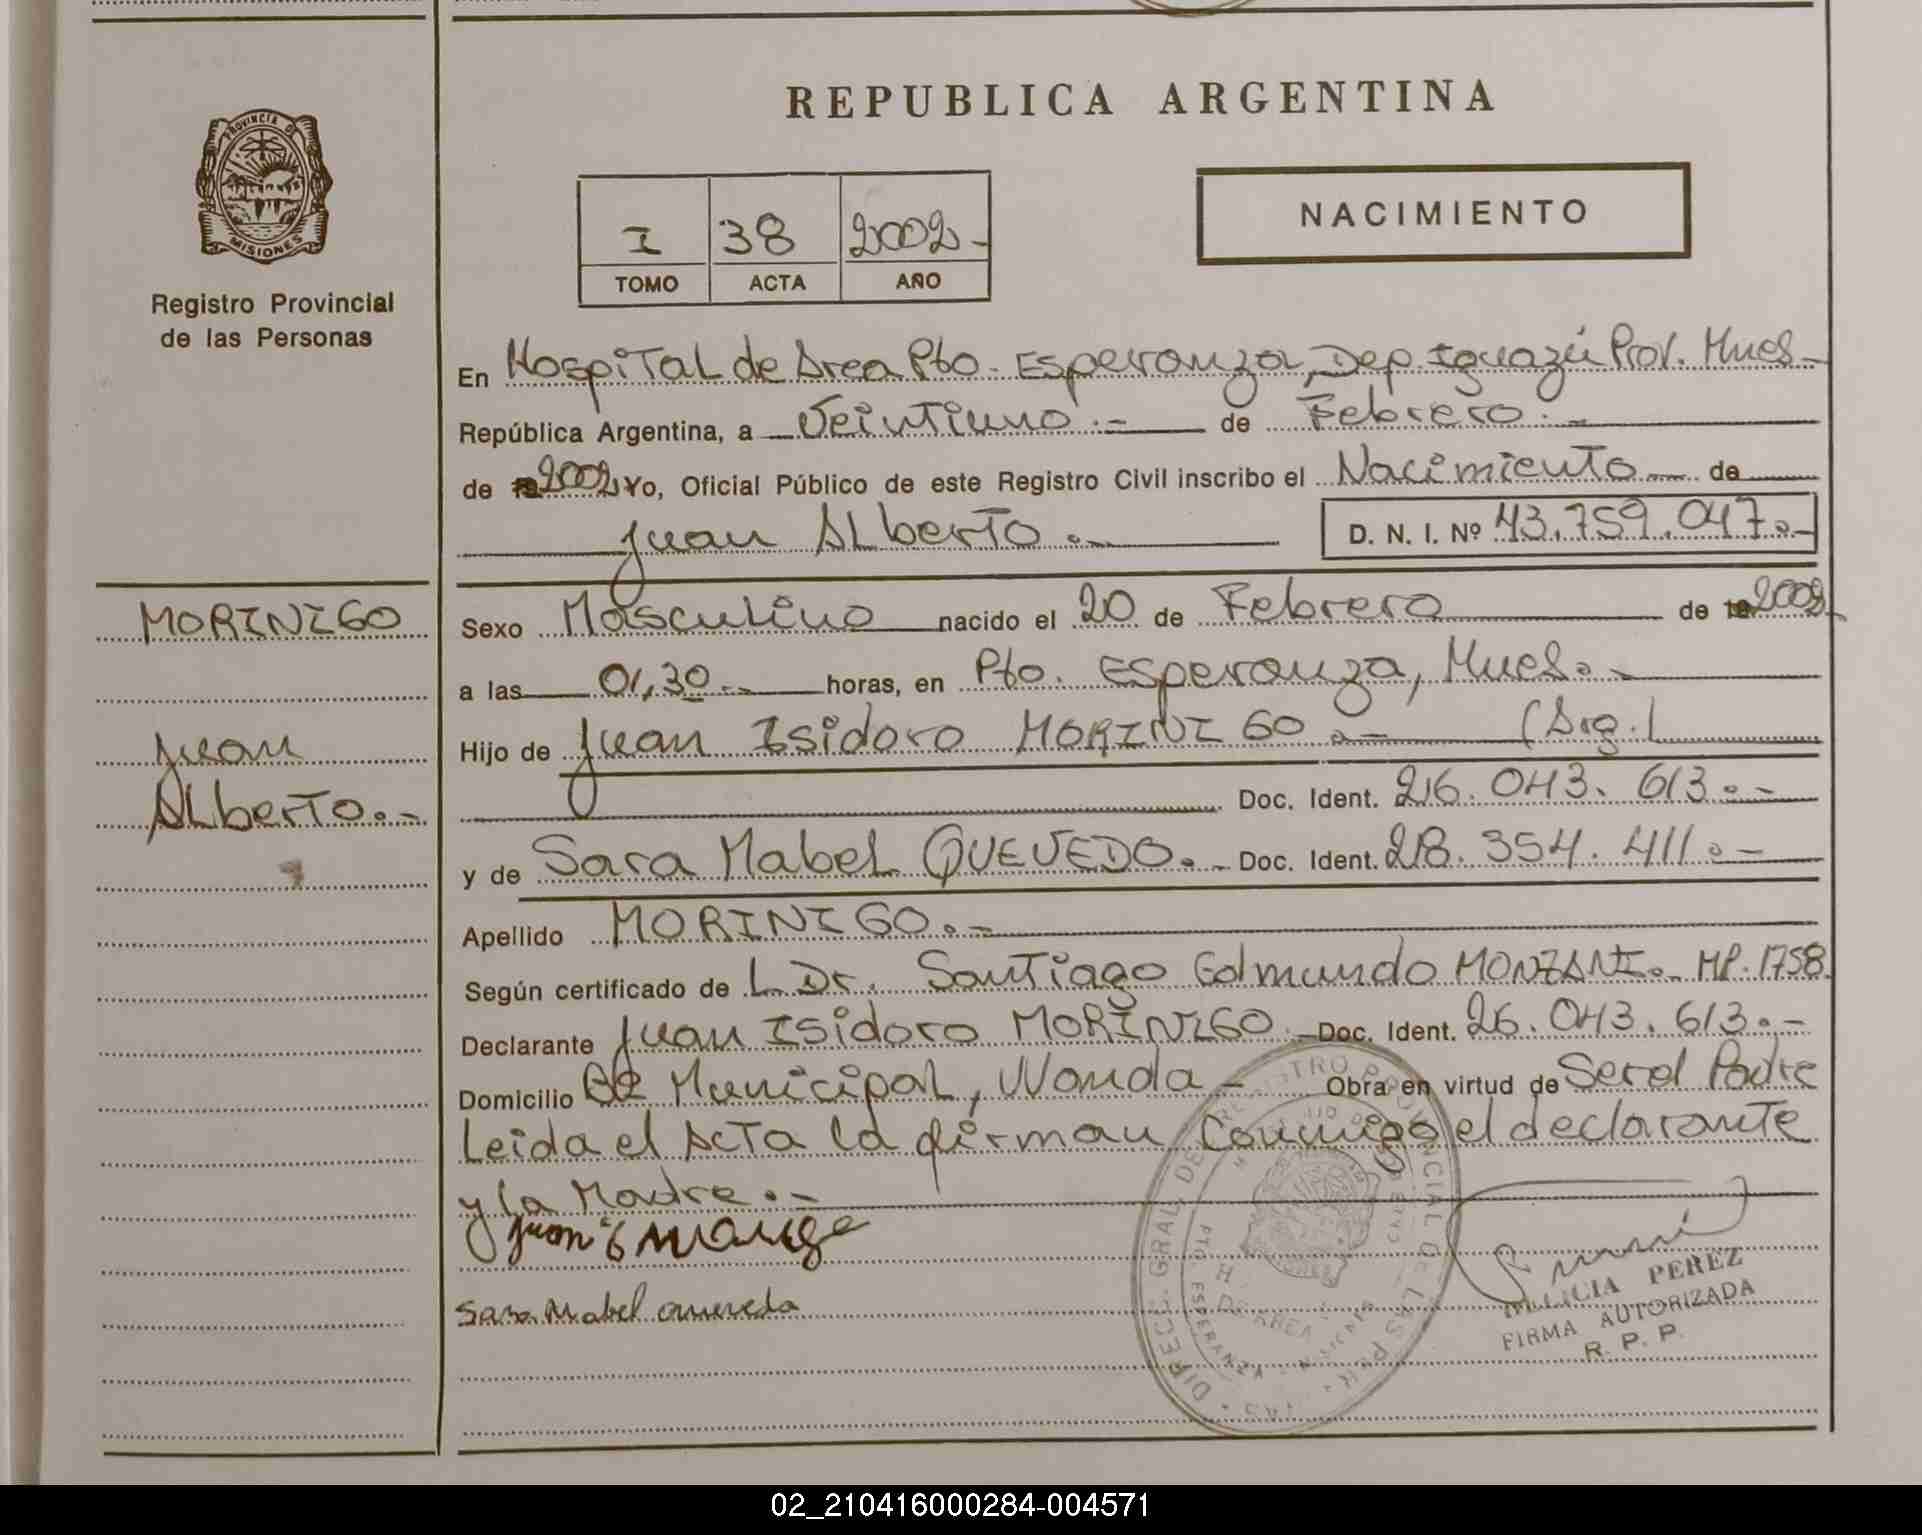 REPUBLICA ARGENTINA
PROVINCIA DE
MISIONES
Registro Provincial
de las Personas
I 38 2002-
TOMO ACTA AÑO
NACIMIENTO
En Hospital de Area Pto. Esperanza, Dep. Iguazú Prov. Mnes-
República Argentina, a Veintiuno.- de Febrero.-
de 2002 Yo, Oficial Público de este Registro Civil inscribo el Nacimiento de
Juan Alberto.- D. N. I. Nº 43.759.047.-
MORINIGO
Juan
Alberto.-
Sexo Masculino nacido el 20 de Febrero de 2002-
a las 01,30.- horas, en Pto. Esperanza, Mnes.-
Hijo de Juan Isidoro MORINIGO.- (Arg.)
Doc. Ident. 26.043.613.-
y de Sara Mabel QUEVEDO.- Doc. Ident. 28.354.411.-
Apellido MORINIGO.-
Según certificado de L Dr. Santiago Edmundo MONZANI.- MP.1758.
Declarante Juan Isidoro MORINIGO.- Doc. Ident. 26.043.613.-
Domicilio Bº Municipal, Wanda- Obra en virtud de Ser el Padre
Leida el Acta la firman conmigo el declarante
y la Madre.-
Juan
Sara Mabel
DIRECC. GRAL. DE REGISTRO PROVINCIAL DE LAS PER
PTO. ESPERANZA - MISIONES
H. DE AREA
PEREZ
FIRMA AUTORIZADA
R. P. P.
02_210416000284-004571